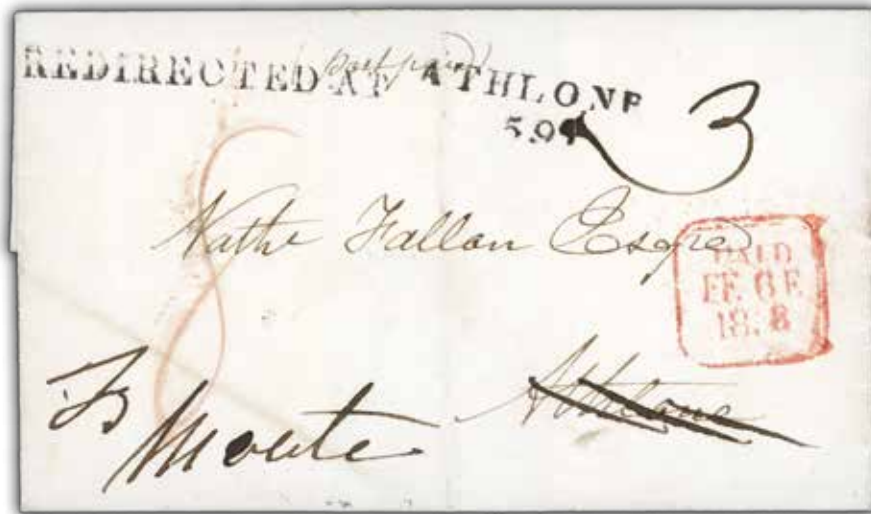 REDIRECTED AT ATHLONE
post paid
59
3
8
Nathl Fallon Esqre
PAID
FE 6 E
18 8
To
Moate
Athlone